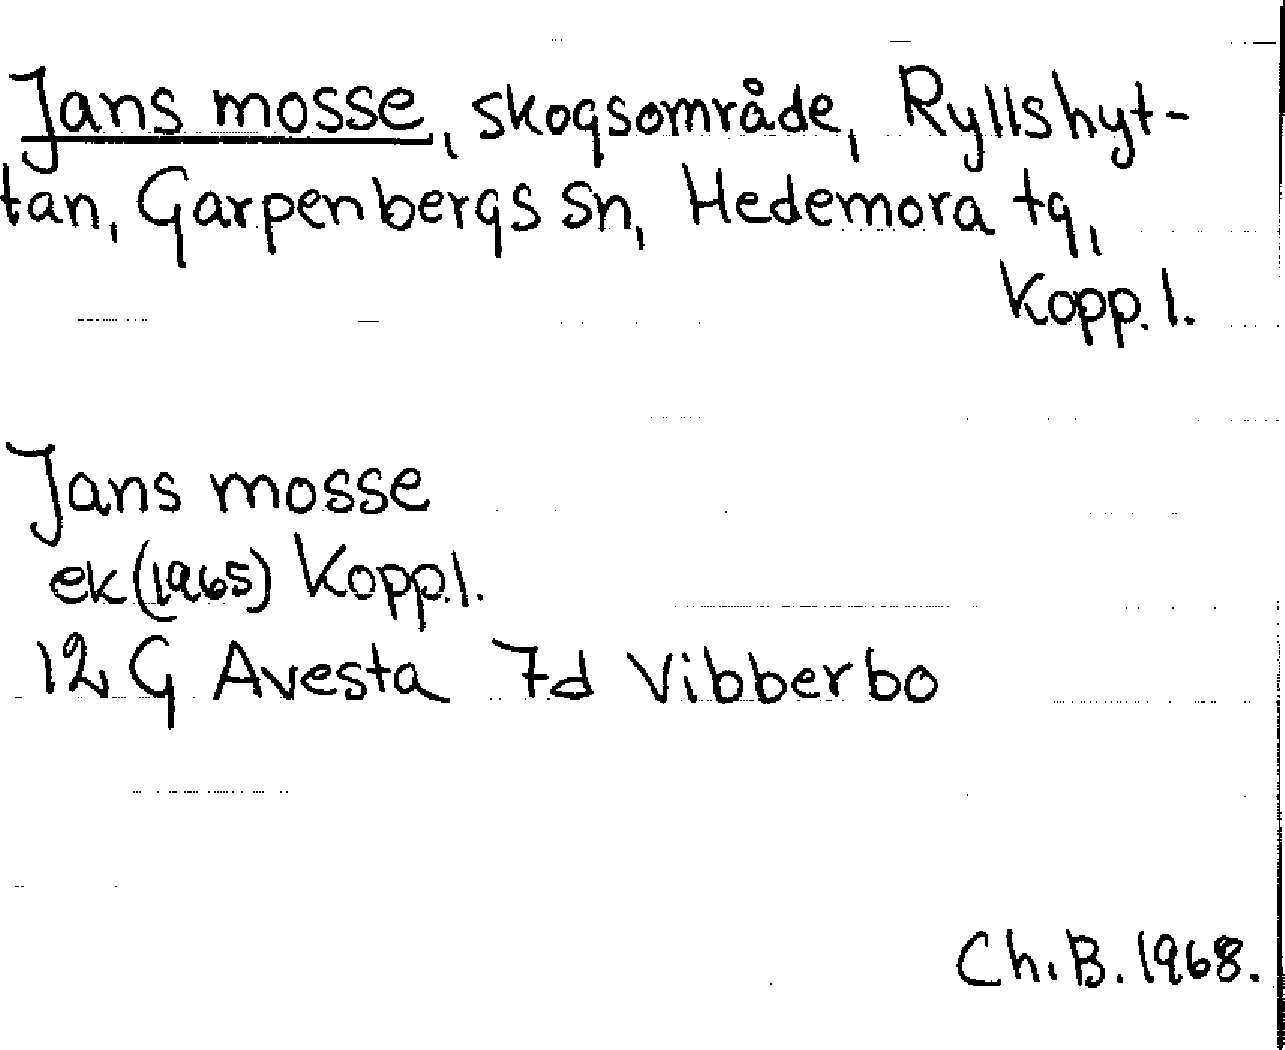 Jans mosse, skogsområde, Ryllshyt-
tan, Garpenbergs sn, Hedemora tg,
Kopp. l.
Jans mosse
ek (1965) Kopp. l.
12 G Avesta 7d Vibberbo
Ch. B. 1968.